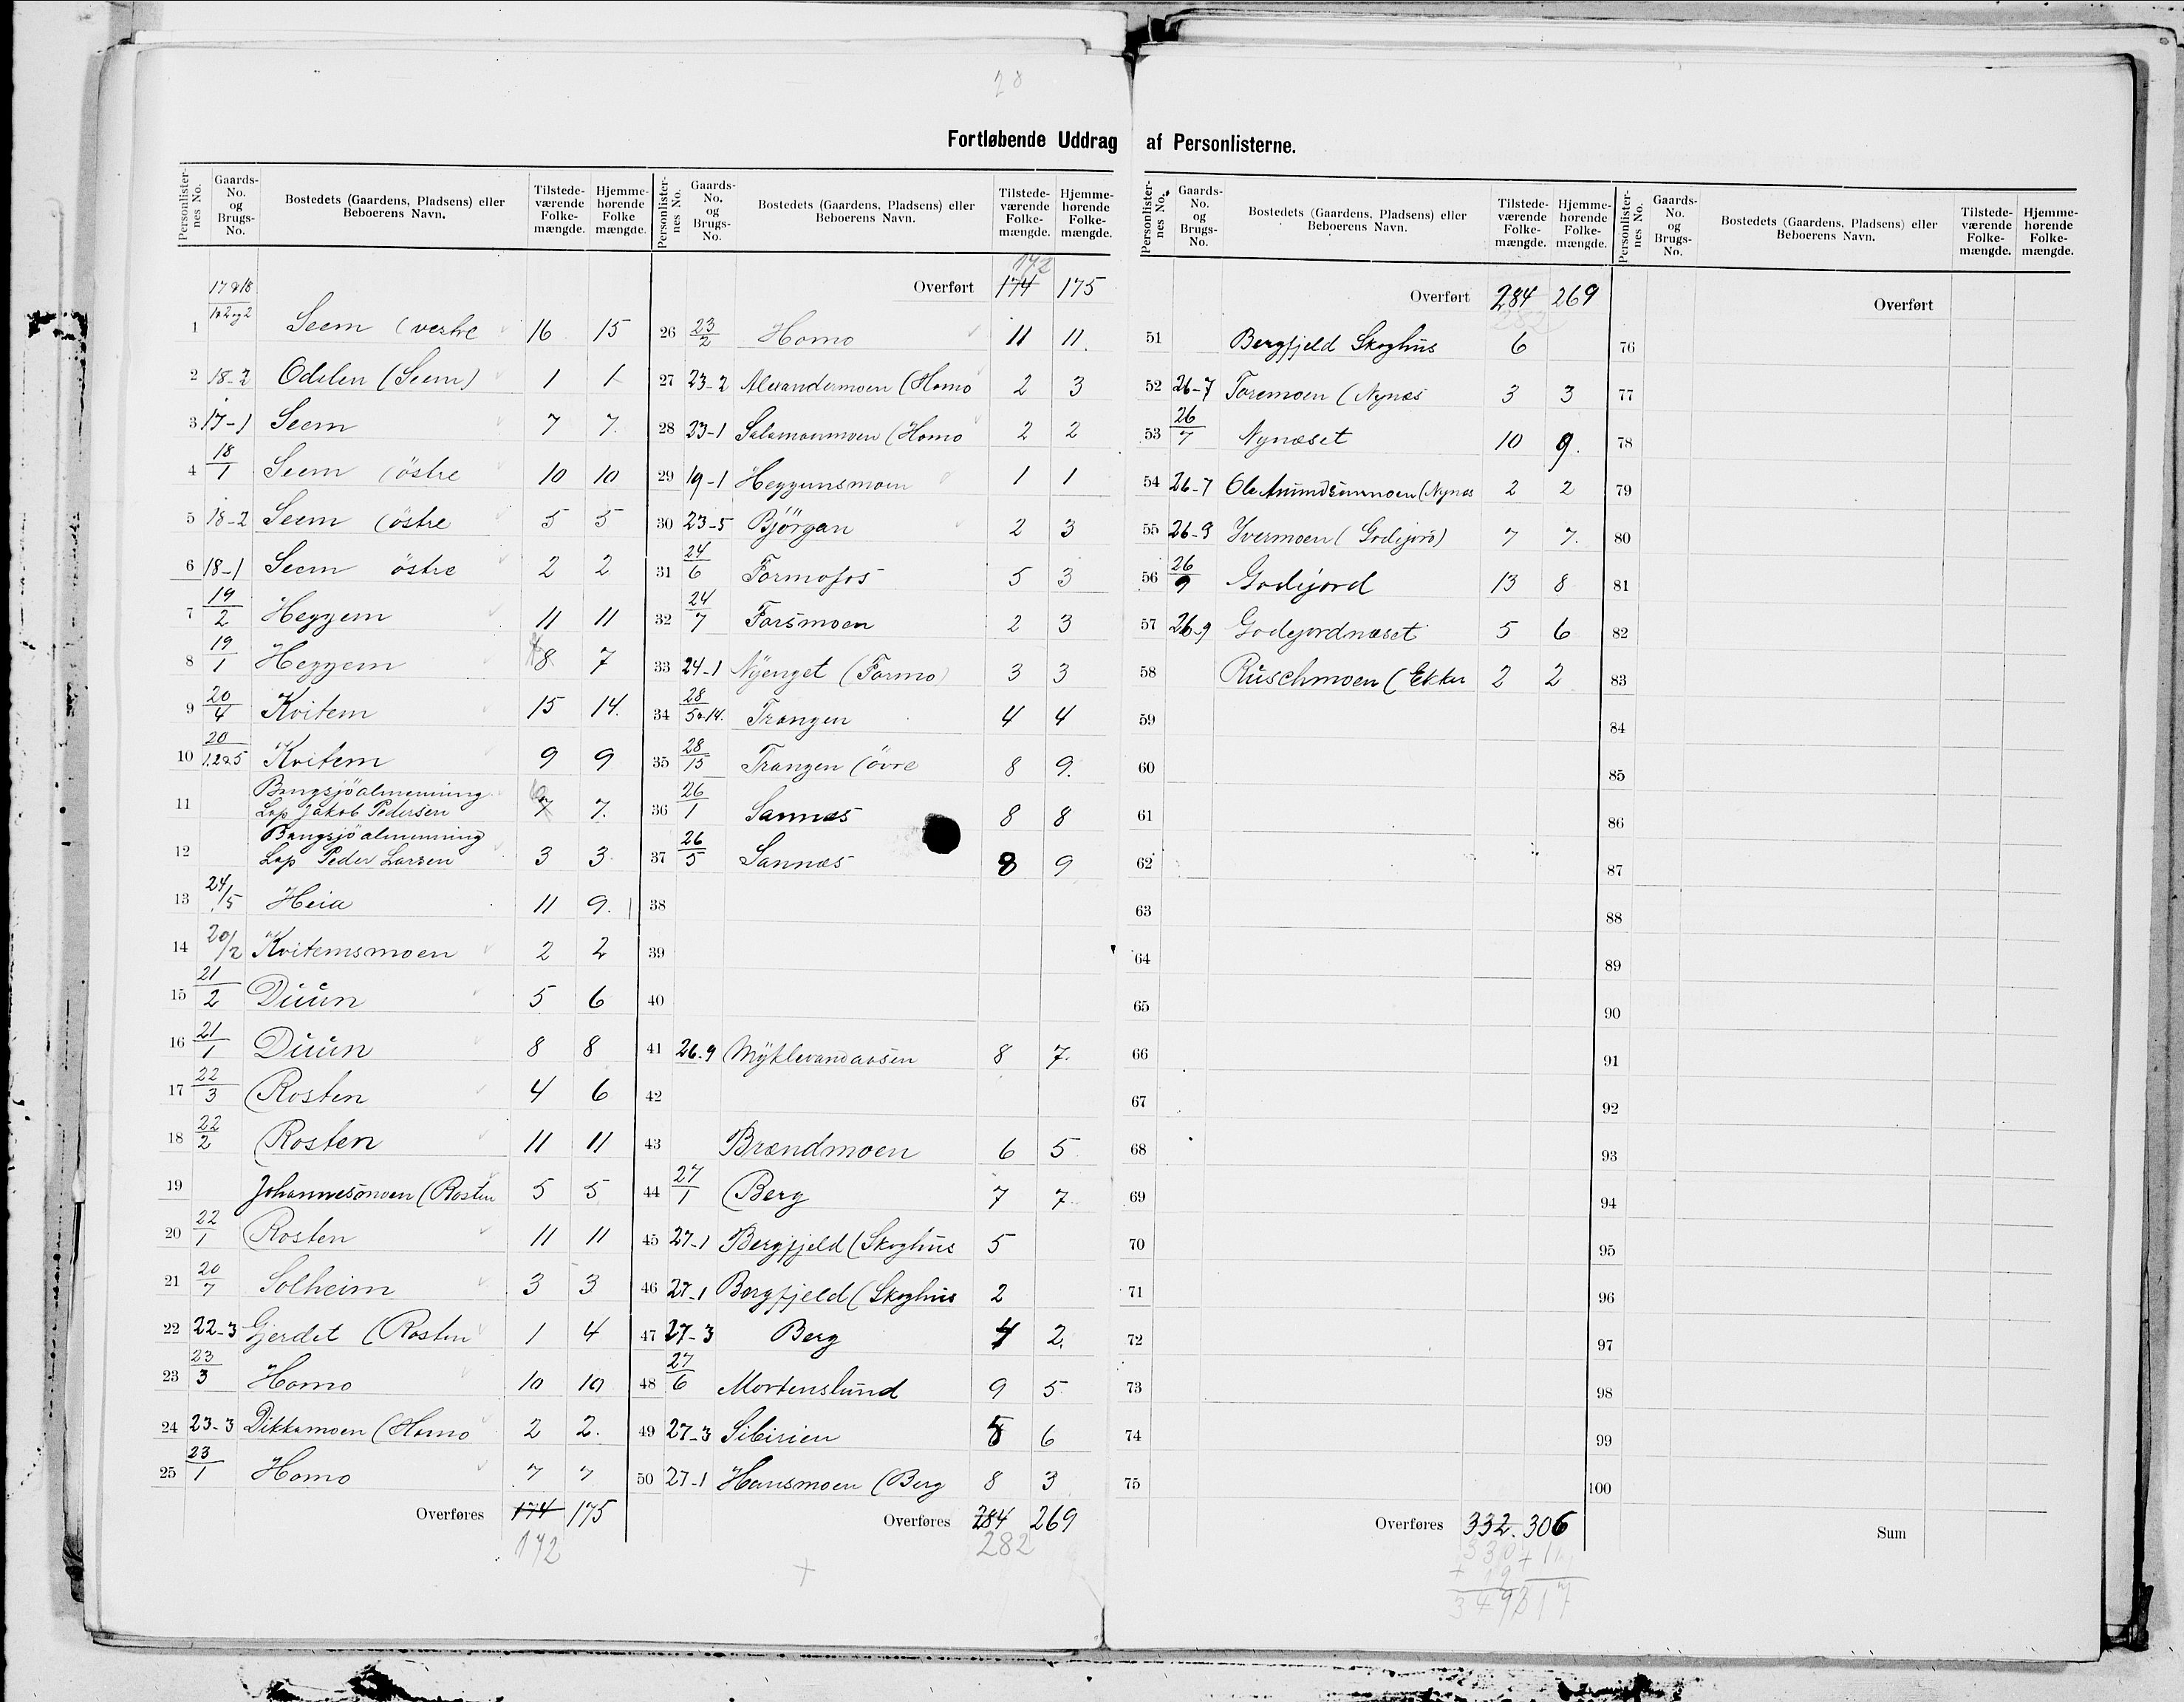 28
Fortløbende Uddrag af Personlisterne.
Personlister-nes No. Gaards-No. og Brugs-No. Bostedets (Gaardens, Pladsens) eller Beboerens Navn. Tilstede-værende Folke-mængde. Hjemme-hørende Folke mængde.
17 & 18
1 1a2og2 Seem (vestre 16 15
2 18-2 Odelen (Seem) 1 1
3 17-1 Seem 7 7.
4 18/1 Seem (östre 10 10
5 18-2 Seem (östre 5 5
6 18-1 Seem östre 2 2
7 19/2 Heggem 11 11
8 19/1 Heggem 8 7
9 20/4 Kvitem 15 14.
10 20/1.2&5 Kvitem 9 9
11 Bangsjöalmenning
Lap Jakob Pedersen 7 7.
12 Bangsjöalmenning
Lap Peder Larsen 3 3
13 24/5 Heia 11 9.
14 20/2 Kvitemsmoen 2 2
15 21/2 Duun 5 6
16 21/1 Duun 8 8
17 22/3 Rosten 4 6
18 22/2 Rosten 11 11
19 Johannesmoen (Rosten 5 5
20 22/1 Rosten 11 11
21 20/7 Solheim 3 3
22 22-3 Gjerdet (Rosten 1 4
23 23/3 Homo 10 10
24 23-3 Dikkamoen (Homo 2 2.
25 23/1 Homo 7 7
Overføres 174 175
172
Personlister-nes No. Gaards-No. og Brugs-No. Bostedets (Gaardens, Pladsens) eller Beboerens Navn. Tilstede-værende Folke-mængde. Hjemme-hørende Folke-mængde.
172
Overført 174 175
26 23/2 Homo 11 11.
27 23-2 Alexandermoen (Homo 2 3
28 23-1 Salamonmoen (Homo 2 2
29 19-1 Heggumsmoen 1 1
30 23-5 Bjørgan 2 3
31 24/6 Formofos 5 3
32 24/7 Forsmoen 2 3
33 24-1 Nyenget (Formo) 3 3
34 28/5a.14. Trangen 4 4
35 28/15 Trangen (övre 8 9.
36 26/1 Sannæs 8 8
37 26/5 Sannæs 8 9
38
39
40
41 26.9 Myklevandaasen 8 7.
42
43 Brændmoen 6 5
44 27/1 Berg 7 7
45 27-1 Bergfjeld (Skoghus 5
46 27-1 Bergfjeld (Skoghus 2
47 27-3 Berg 4 2.
48 27/6 Mortenslund 9 5
49 27-3 Sibirien 5 6
50 27-1 Hansmoen (Berg 8 3
Overføres 284 269
282
Personlister-nes No. Gaards-No. og Brugs-No. Bostedets (Gaardens, Pladsens) eller Beboerens Navn. Tilstede-værende Folke-mængde. Hjemme-hørende Folke-mængde.
Overført 284 269
282
51 Bergfjeld Skoghus 6
52 26-7 Toremoen (Nynæs 3 3
53 26/7 Nynæset 10 9.
54 26-7 Ole Amundsenmoen (Nynæs 2 2
55 26-9 Ivermoen (Godejord) 7 7.
56 26/9 Godejord 13 8
57 26-9 Godejordnæset 5 6
58 Ruschmoen (Ekker 2 2
59
60
61
62
63
64
65
66
67
68
69
70
71
72
73
74
75
Overføres 332. 306
330 + 11
+ 19
349 317
Personlister-nes No. Gaards-No. og Brugs-No. Bostedets (Gaardens, Pladsens) eller Beboerens Navn. Tilstede-værende Folke-mængde. Hjemme-hørende Folke-mængde.
Overført
76
77
78
79
80
81
82
83
84
85
86
87
88
89
90
91
92
93
94
95
96
97
98
99
100
Sum